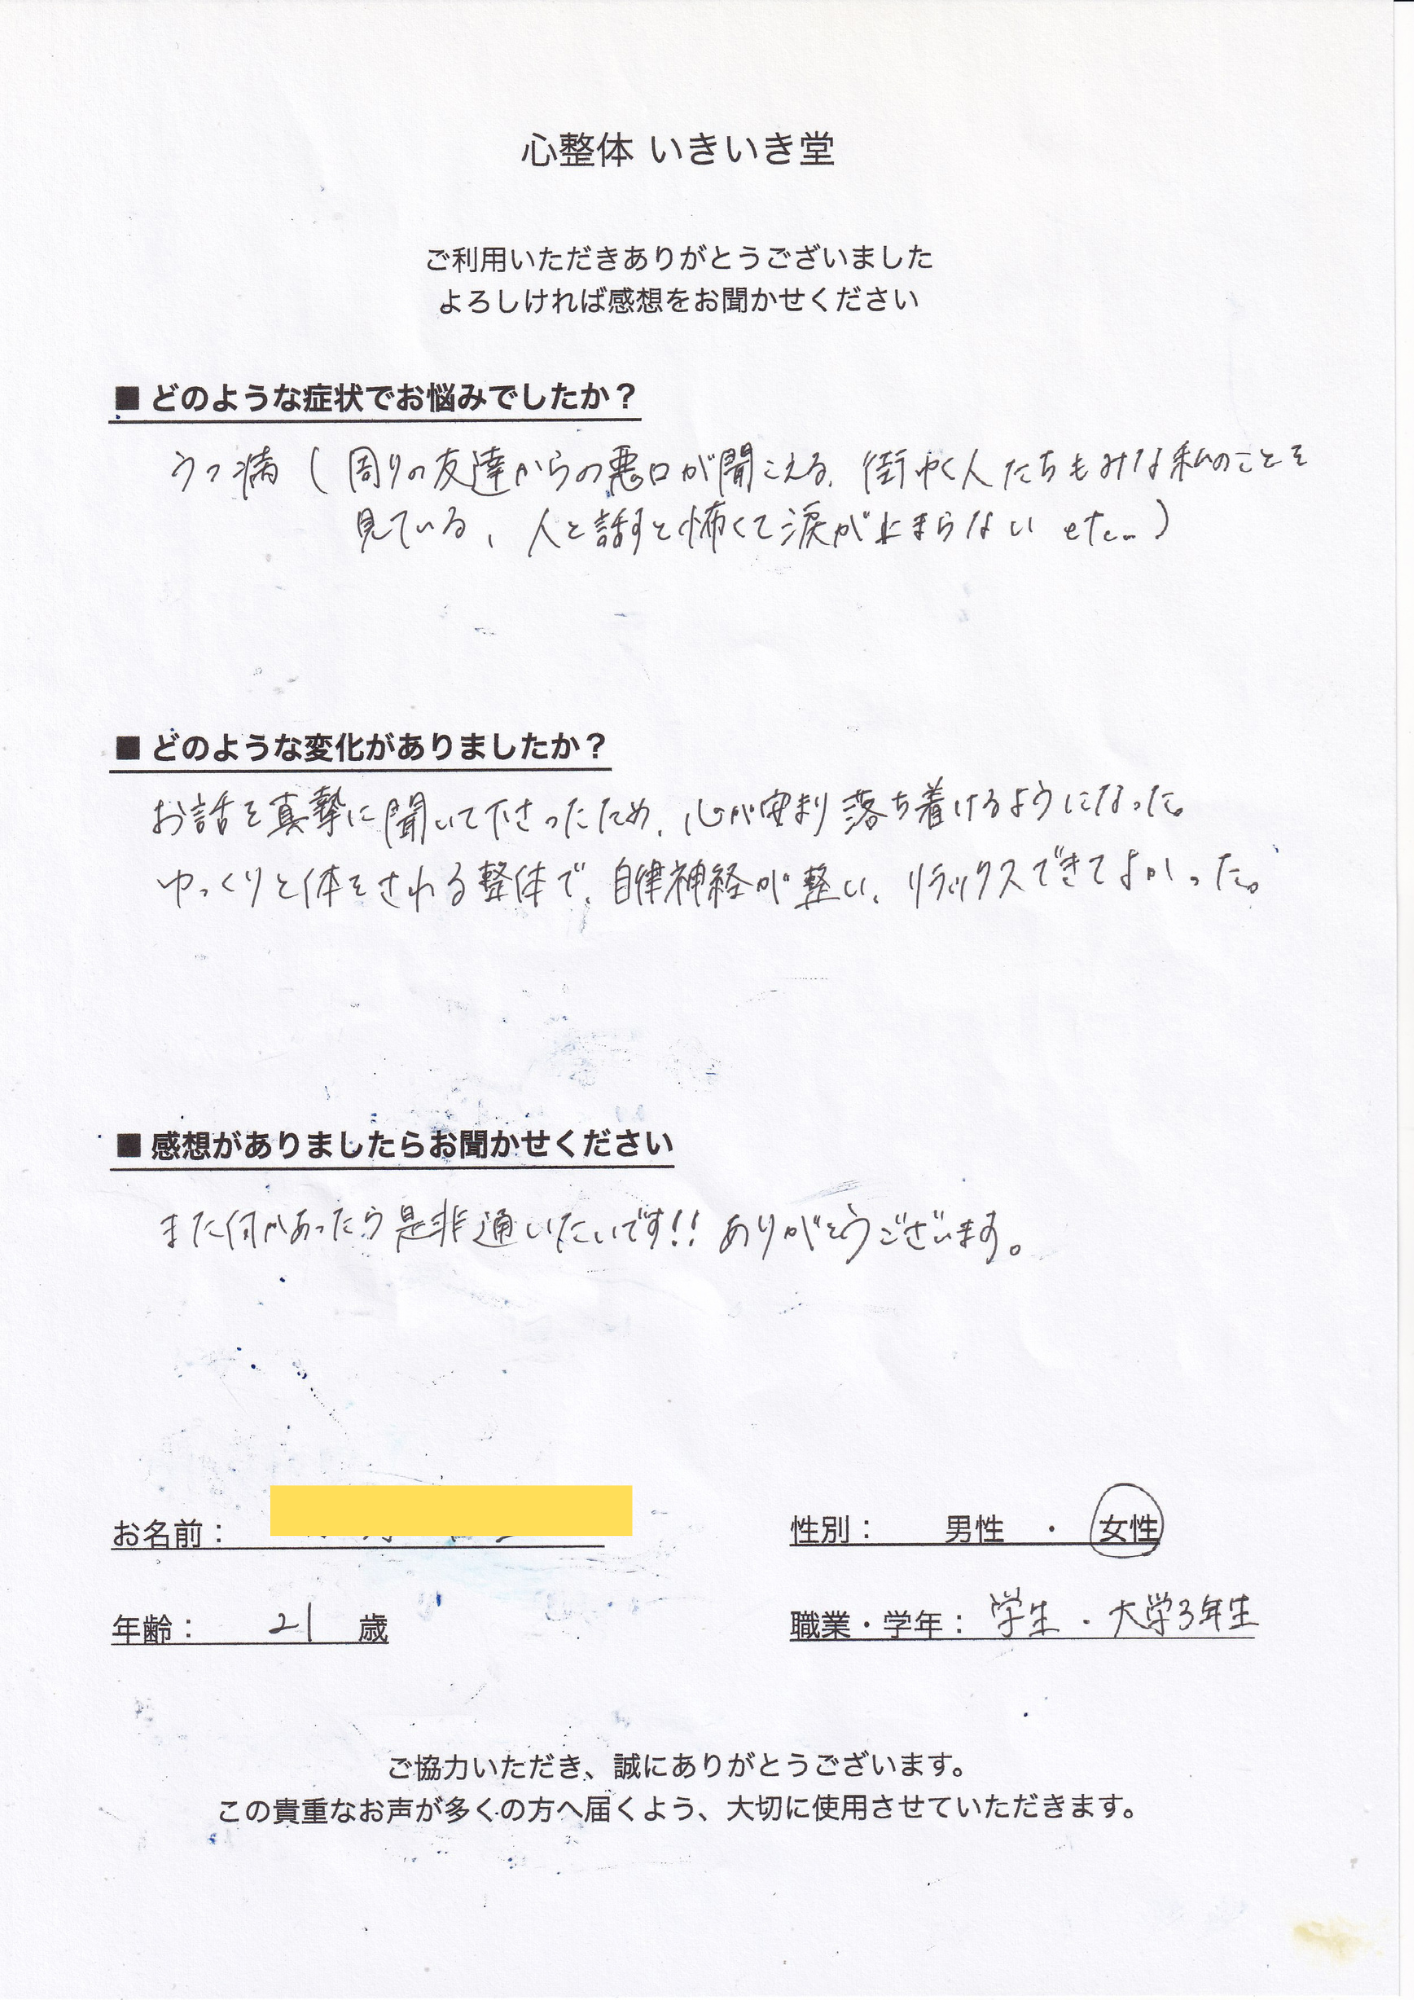 心整体 いきいき堂
ご利用いただきありがとうございました
よろしければ感想をお聞かせください
■ どのような症状でお悩みでしたか？
うつ病 ( 周りの友達からの悪口が聞こえる、街ゆく人たちもみな私のことを
見ている、人と話すと怖くて涙が止まらない etc… )
■ どのような変化がありましたか？
お話を真摯に聞いて下さったため、心が安まり落ち着けるようになった。
ゆっくりと体をされる整体で、自律神経が整い、リラックスできてよかった。
■ 感想がありましたらお聞かせください
また何かあったら是非通いたいです!! ありがとうございます。
お名前：
性別： 男性 ・ 女性
年齢： 21 歳
職業・学年： 学生 ・ 大学3年生
ご協力いただき、誠にありがとうございます。
この貴重なお声が多くの方へ届くよう、大切に使用させていただきます。